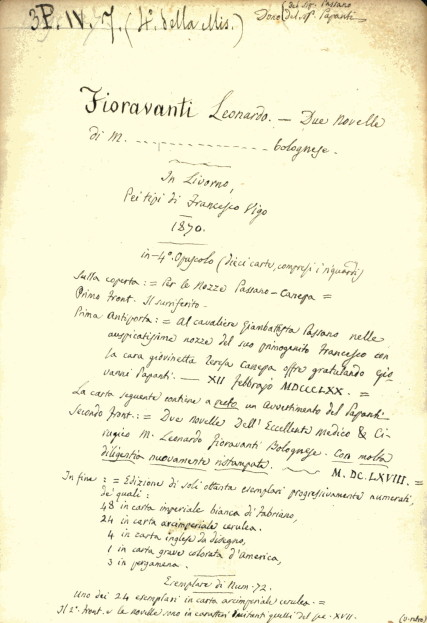 3P. IV. 7. (4°. della Mis.)
Dono {del Sig. Passano
del Sig. Papanti
Fioravanti Leonardo. — Due Novelle
di M. . . . . . . . . . . . . . . . bolognese.
In Livorno,
Pei tipi di Francesco Vigo
1870.
in-4°. Opuscolo (dieci carte, compresi i riguardi)
Sulla coperta: = Per le Nozze Passano-Canepa =
Primo front. Il surriferito.
Prima Antiporta: = Al cavaliere Giambattista Passano nelle
auspicatissime nozze del suo primogenito Francesco con
la cara giovinetta Teresa Canepa offre gratulando Gio
vanni Papanti. — XII Febbrajo MDCCCLXX. =
La carta seguente contiene a retro un Avvertimento del Papanti.
Secondo front: = Due novelle Dell' Eccellente Medico & Ci-
rugico M. Leonardo Fioravanti Bolognese. Con molta
diligentia nuovamente ristampate. M. DC. LXVIII. =
In fine: = Edizione di soli ottanta esemplari progressivamente numerati,
de' quali:
48 in carta imperiale bianca di Fabriano,
24 in carta arcimperiale cerulea.
4 in carta inglese da disegno,
1 in carta grave colorata d'America,
3 in pergamena.
Esemplare di Num. 72.
Uno dei 24 esemplari in carta arcimperiale cerulea. =
Il 2°. front. e le novelle sono in caratteri imitanti quelli del sec. XVII.
(v. retro)